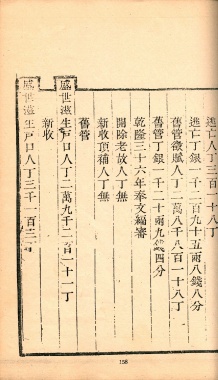 逃亡人丁三百一十八丁
逃亡丁銀一千二百九十五兩八錢八分
舊管徵賦人丁一萬八千八百一十八丁
舊管丁銀一千二十兩九錢四分
乾隆三十六年奉文編審
開除老故人丁無
新收頂補人丁無
舊管
盛世滋生戶口人丁二萬九千二百一十一丁
新收
盛世滋生戶口人丁三千一百三
158